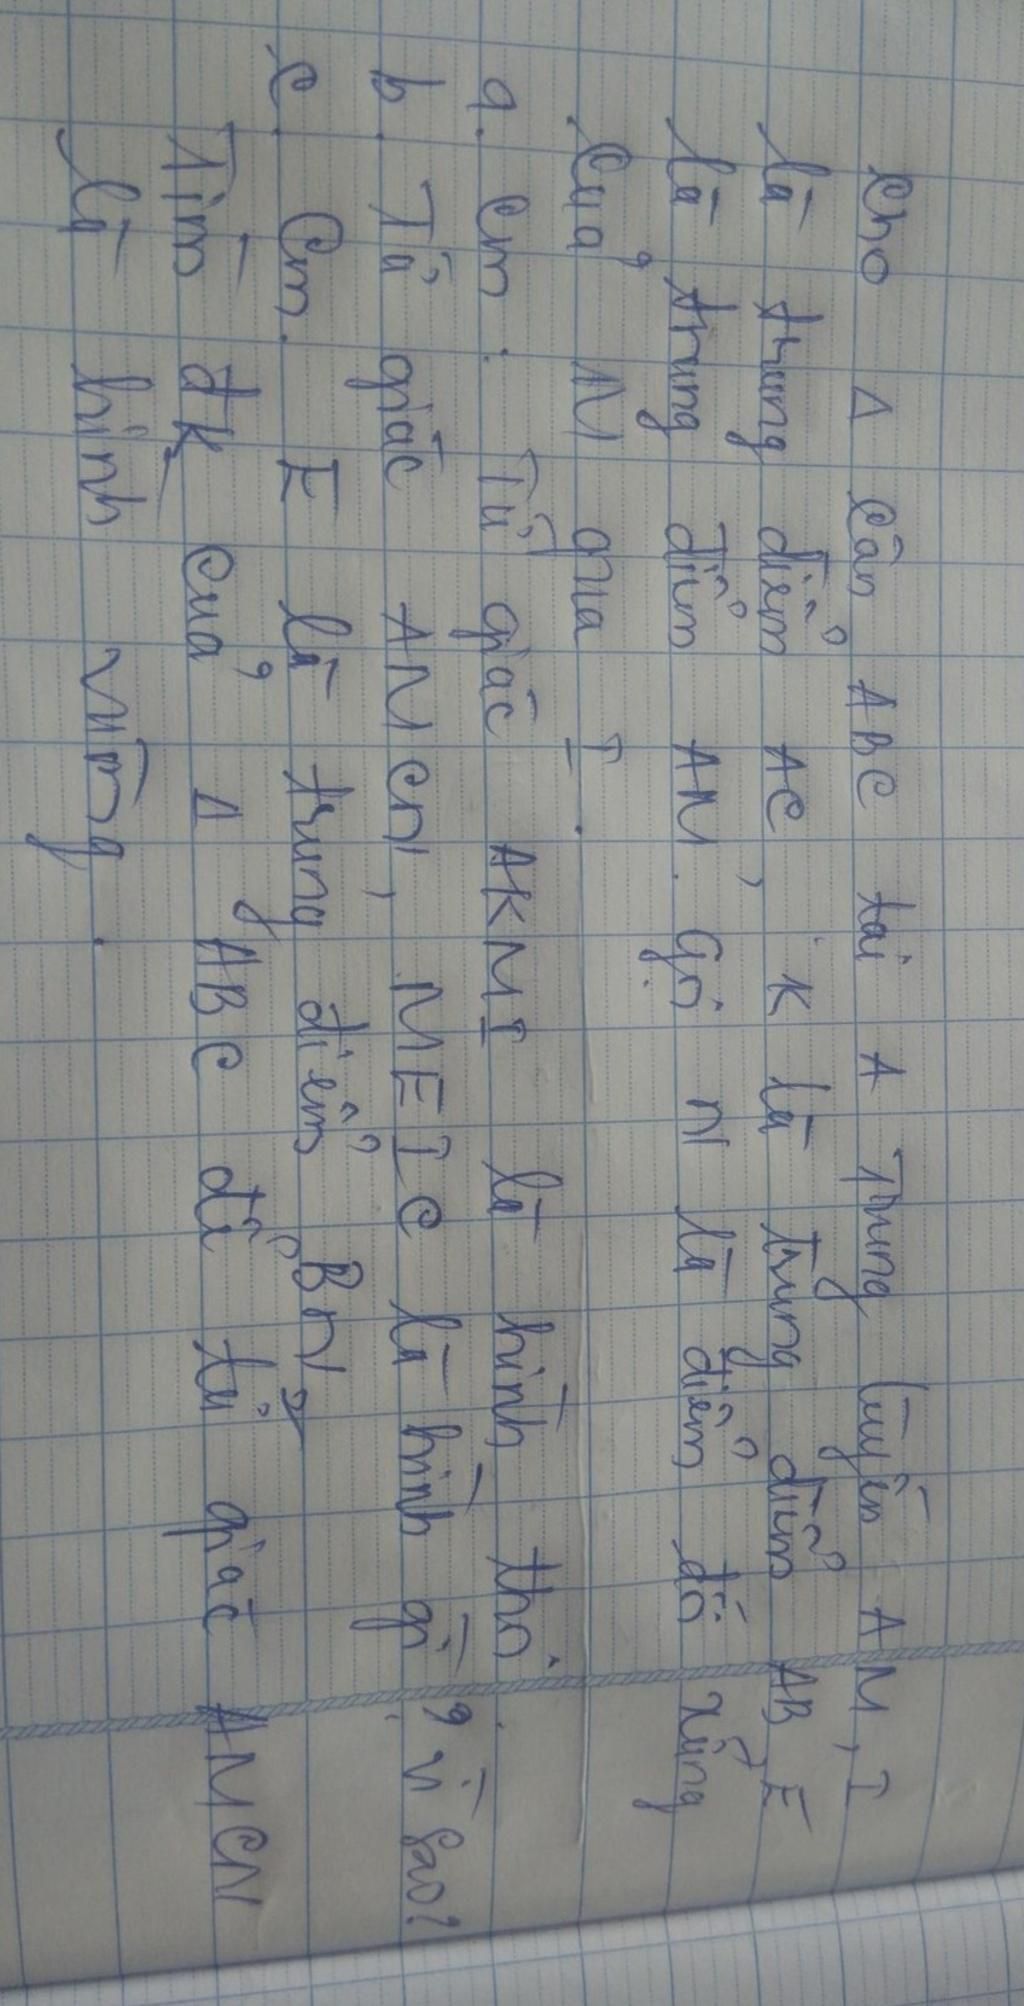 Cho Δ Cân ABC tại A Trung tuyến AM, I
là trung điểm AC, K là trung điểm AB, E
là trung điểm AM. Gọi N là điểm đối xứng
Của M qua I.
a. Cm: Tứ giác AKMI là hình thoi.
b. Tứ giác AMCN, MEIC là hình gì? Vì Sao?
c. Cm. E là trung điểm BN
Tìm đk Của Δ ABC để tứ giác AMCN
là hình vuông.